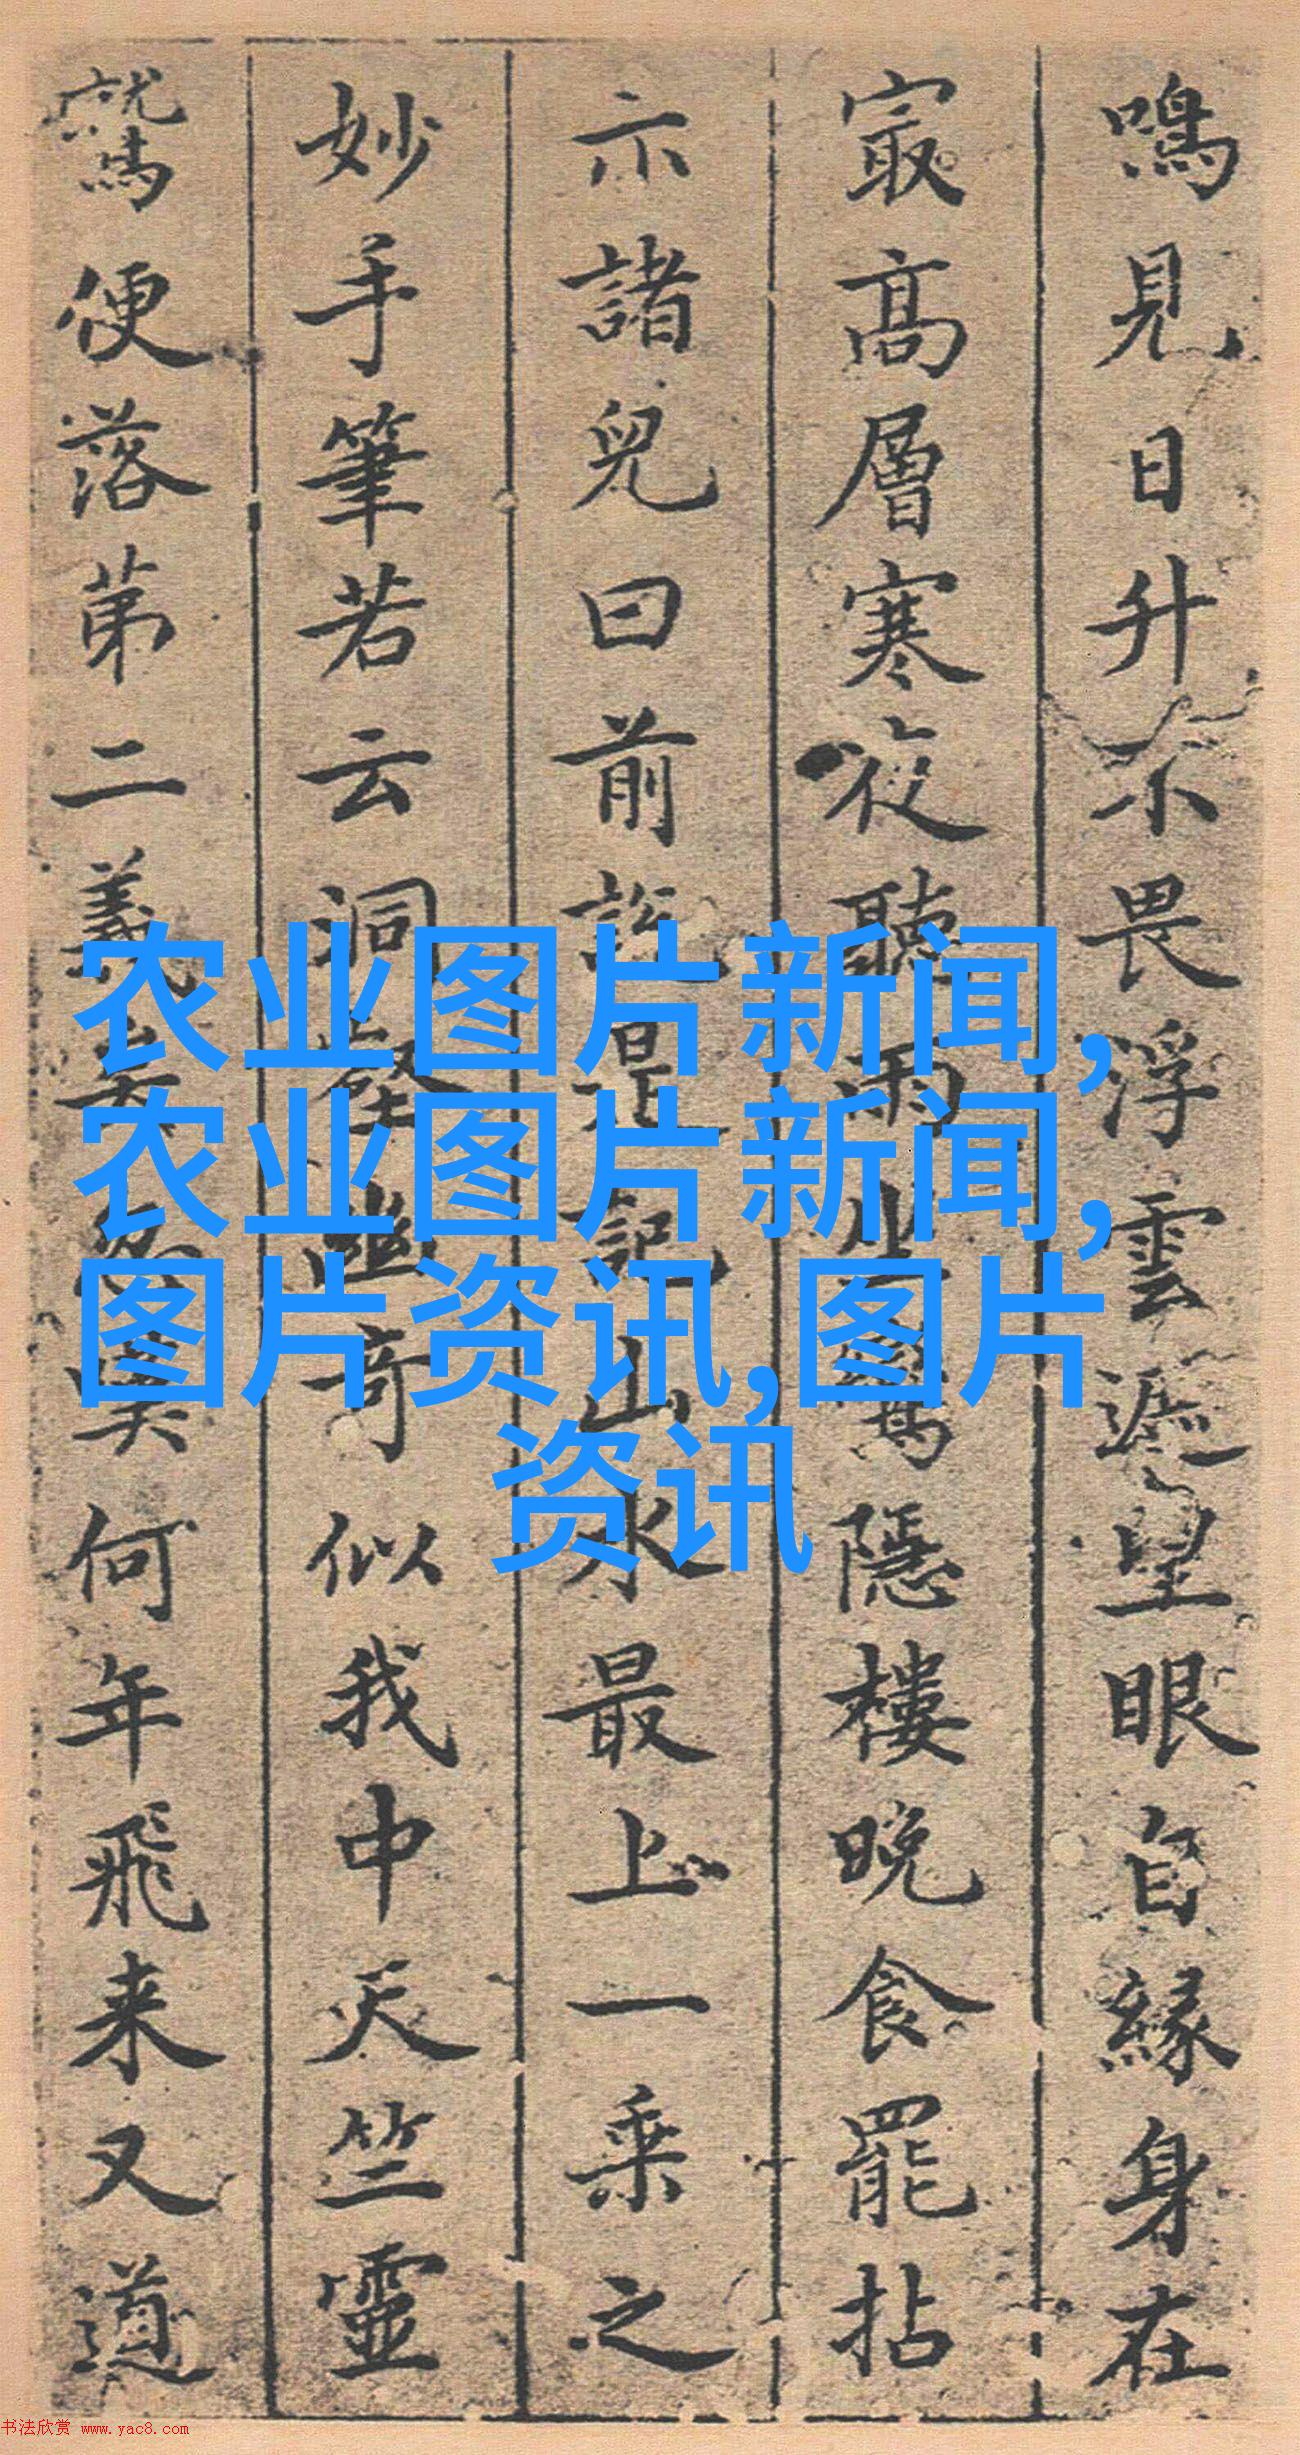 鳴見日升不畏浮雲遮望眼自緣身在
㝡高層寒夜聽雨坐隱樓晚食罷拈
示諸兒曰前說是記山水最上一乘之
妙手筆若云洞壑幽奇似我中天竺靈
鷲便落苐二義矣笑何年飛来又道
农业图片新闻,
农业图片新闻,
图片资讯,图片
资讯
书法欣赏 www.yac8.com